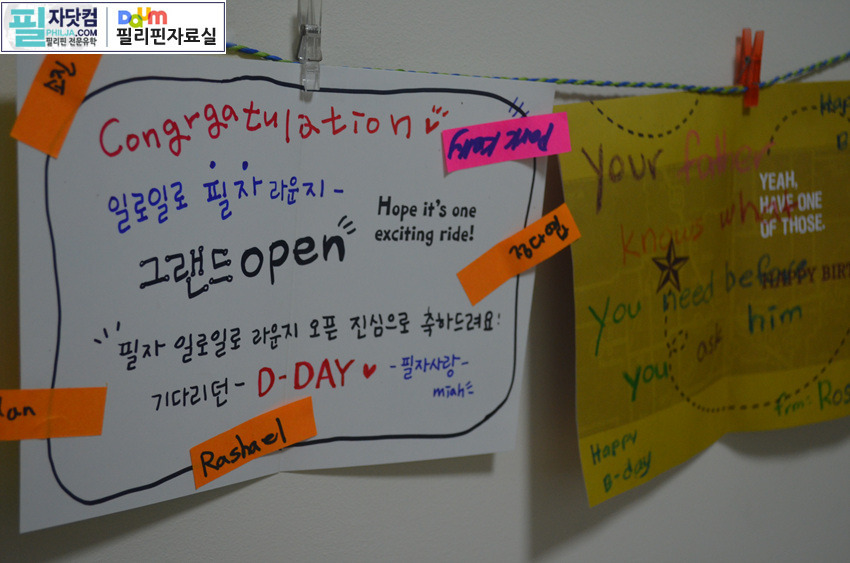 필자닷컴
PHILJA.COM
필리핀 전문유학
Daum
필리핀자료실
소진
Congrgatulation
일로일로 필자 라운지-
Hope it's one
exciting ride!
그랜드open
필자 일로일로 라운지 오픈 진심으로 축하드려요!
기다리던- D-DAY
-필자사랑-
miah
Rashael
정다엽
your father
knows what
you need before
you ask him
YEAH,
HAVE ONE
OF THOSE.
HAPPY BIRT
frm: Ros
Happy
B-day